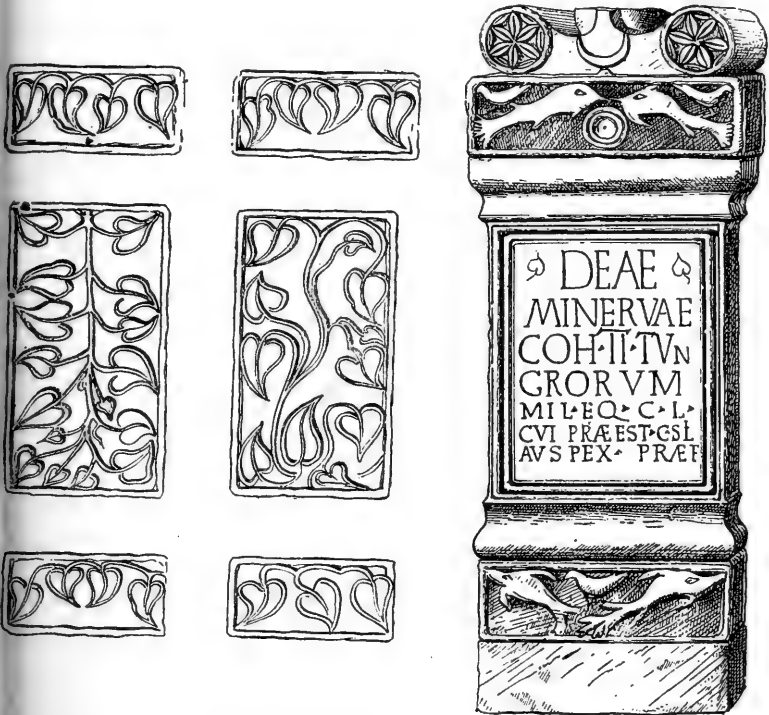 DEAE
MINERVAE
COH·II·TVN
GRORVM
MIL·EQ·C·L·
CVI PRÆEST·CSL
AVSPEX· PRÆF